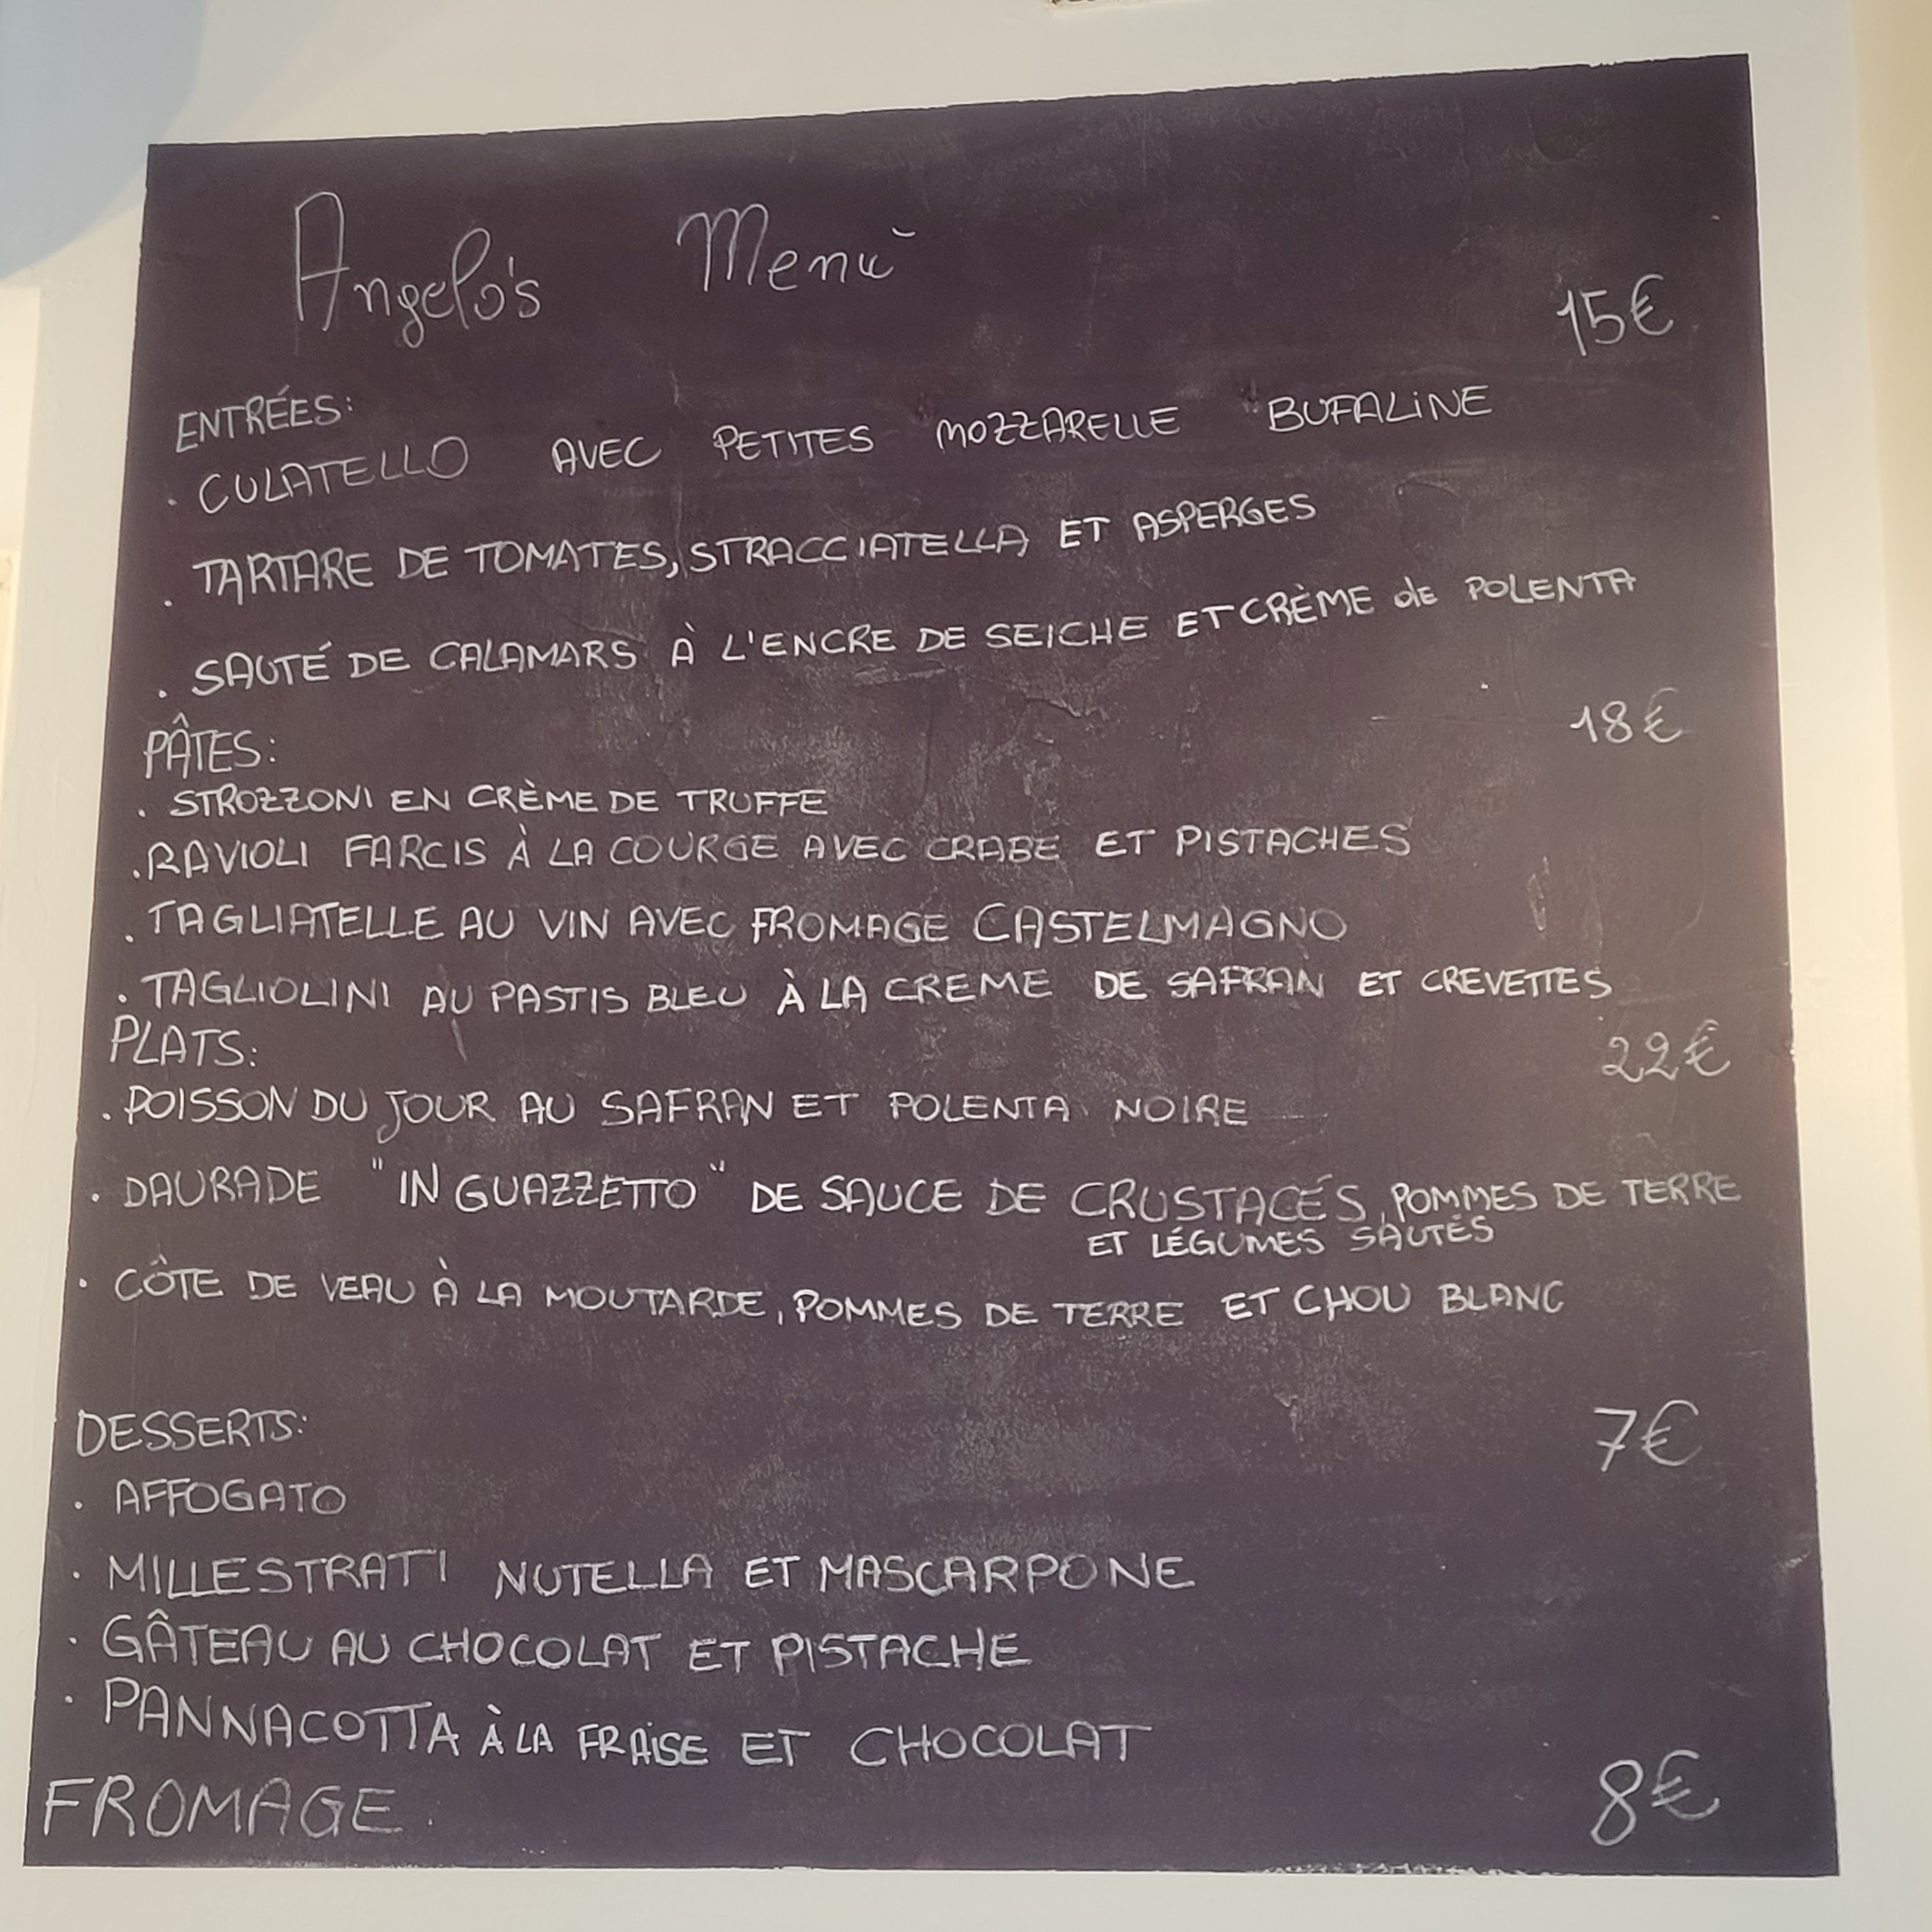 Angelo's Menù
15€
ENTRÉES:
· CULATELLO AVEC PETITES MOZZARELLE BUFALINE
. TARTARE DE TOMATES, STRACCIATELLA ET ASPERGES
. SAUTÉ DE CALAMARS À L'ENCRE DE SEICHE ET CRÈME de POLENTA
PÂTES: 18€
. STROZZONI EN CRÈME DE TRUFFE
. RAVIOLI FARCIS À LA COURGE AVEC CRABE ET PISTACHES
. TAGLIATELLE AU VIN AVEC FROMAGE CASTELMAGNO
. TAGLIOLINI AU PASTIS BLEU À LA CREME DE SAFRAN ET CREVETTES
PLATS: 22€
. POISSON DU JOUR AU SAFRAN ET POLENTA NOIRE
. DAURADE "IN GUAZZETTO" DE SAUCE DE CRUSTACÉS, POMMES DE TERRE
ET LÉGUMES SAUTÉS
· CÔTE DE VEAU À LA MOUTARDE, POMMES DE TERRE ET CHOU BLANC
DESSERTS: 7€
· AFFOGATO
· MILLESTRATI NUTELLA ET MASCARPONE
· GÂTEAU AU CHOCOLAT ET PISTACHE
· PANNACOTTA À LA FRAISE ET CHOCOLAT
FROMAGE. 8€